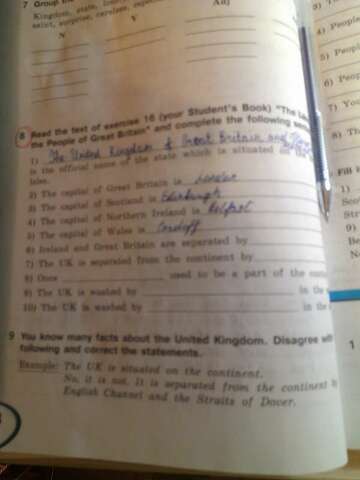 7 Group the
Kingdom, state,
saint, surprise, careless,
N V Adj
8 Read the text of exercise 16 (your Student's Book) "The
the People of Great Britain" and complete the following
1) The United Kingdom of Great Britain and
is the official name of the state which is situated on the
Isles.
2) The capital of Great Britain is London
3) The capital of Scotland is Edinburgh
4) The capital of Northern Ireland is Belfast
5) The capital of Wales is Cardiff
6) Ireland and Great Britain are separated by
7) The UK is separated from the continent by
8) Once used to be a part of the
9) The UK is washed by in the
10) The UK is washed by in the
9 You know many facts about the United Kingdom. Disagree with
following and correct the statements.
Example: The UK is situated on the continent.
No, it is not. It is separated from the continent by
English Channel and the Straits of Dover.
3)
4) People
5) People
6) People
7)
8)
Fill
1)
9)
1